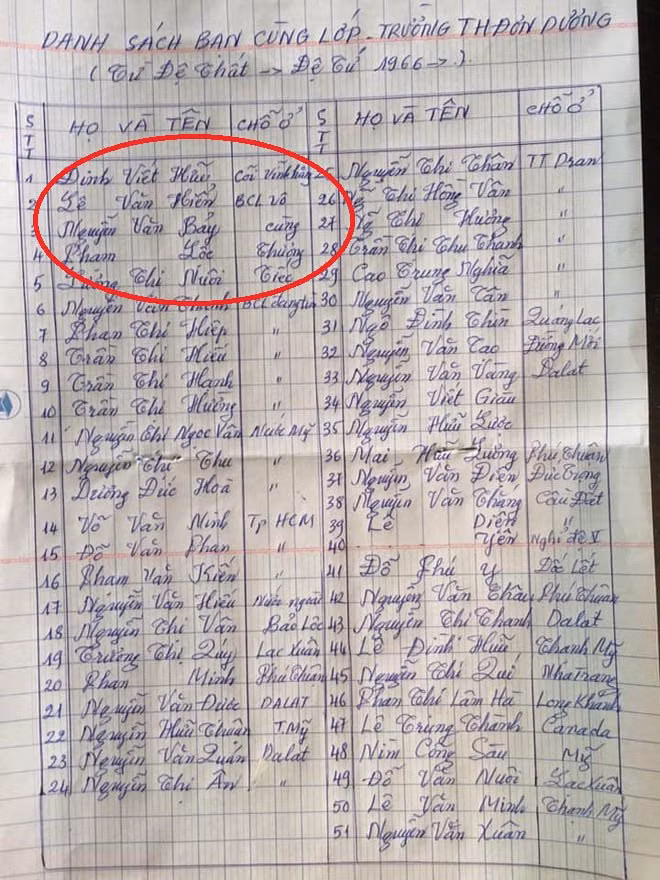 DANH SÁCH BẠN CÙNG LỚP - TRƯỜNG TH ĐƠN DƯƠNG
(Từ Đệ Thất -> Đệ Tứ 1966 -> )
STT HỌ VÀ TÊN CHỖ Ở STT HỌ VÀ TÊN CHỖ Ở
1 Đinh Viết Hữu Cõi Vĩnh hằng 25 Nguyễn Thị Thân TT Dran
2 Lê Văn Hiển BCL Vô 26 Ng Thị Hồng Vân "
3 Nguyễn Văn Bảy cùng 27 Ng Thị Hường "
4 Phạm Lộc Thương 28 Trần Thị Thu Thanh "
5 Thị Nuôi Tiếc 29 Cao Trung Nghĩa "
6 Nguyễn Văn BCL 30 Nguyễn Văn Tân "
7 Phan Thị Hiệp " 31 Ngô Đình Thìn Quảng Lạc
8 Trần Thị Hiếu " 32 Nguyễn Văn Tao Đường Mới
9 Trần Thị Hạnh " 33 Nguyễn Văn Vàng Dalat
10 Trần Thị Hường " 34 Nguyễn Viết Giàu
11 Nguyễn Thị Ngọc Vân Nước Mỹ 35 Nguyễn Hữu Lược
12 Nguyễn Thị Thu " 36 Mai Hữu Lưỡng Phú Thuận
13 Dương Đức Hoà " 37 Nguyễn Văn Diên Đức Trọng
14 Võ Văn Ninh Tp HCM 38 Nguyễn Văn Thăng Cầu Đất
15 Đỗ Văn Phan " 39 Lê Diên "
16 Phạm Văn Kiến " 40 Yên Nghỉ
17 Nguyễn Văn Hiếu Nước ngoài 41 Đỗ Phú Y Dốc Lết
18 Nguyễn Thị Vân Bảo Lộc 42 Nguyễn Văn Thâu Phú Thuận
19 Trương Thị Quý Lạc Xuân 43 Nguyễn Thị Thanh Dalat
20 Phan Minh Phú Thuận 44 Lê Đình Hữu Thạnh Mỹ
21 Nguyễn Văn Được DALAT 45 Nguyễn Thị Qui Nha Trang
22 Nguyễn Hữu Thuận T.Mỹ 46 Phan Thị Lâm Hà Long Khánh
23 Nguyễn Văn Quán Dalat 47 Lê Trung Thành Canada
24 Nguyễn Thị Ân " 48 Nim Công Sáu Mỹ
49 Đỗ Văn Nuôi Lạc Xuân
50 Lê Văn Minh Thạnh Mỹ
51 Nguyễn Văn Xuân "